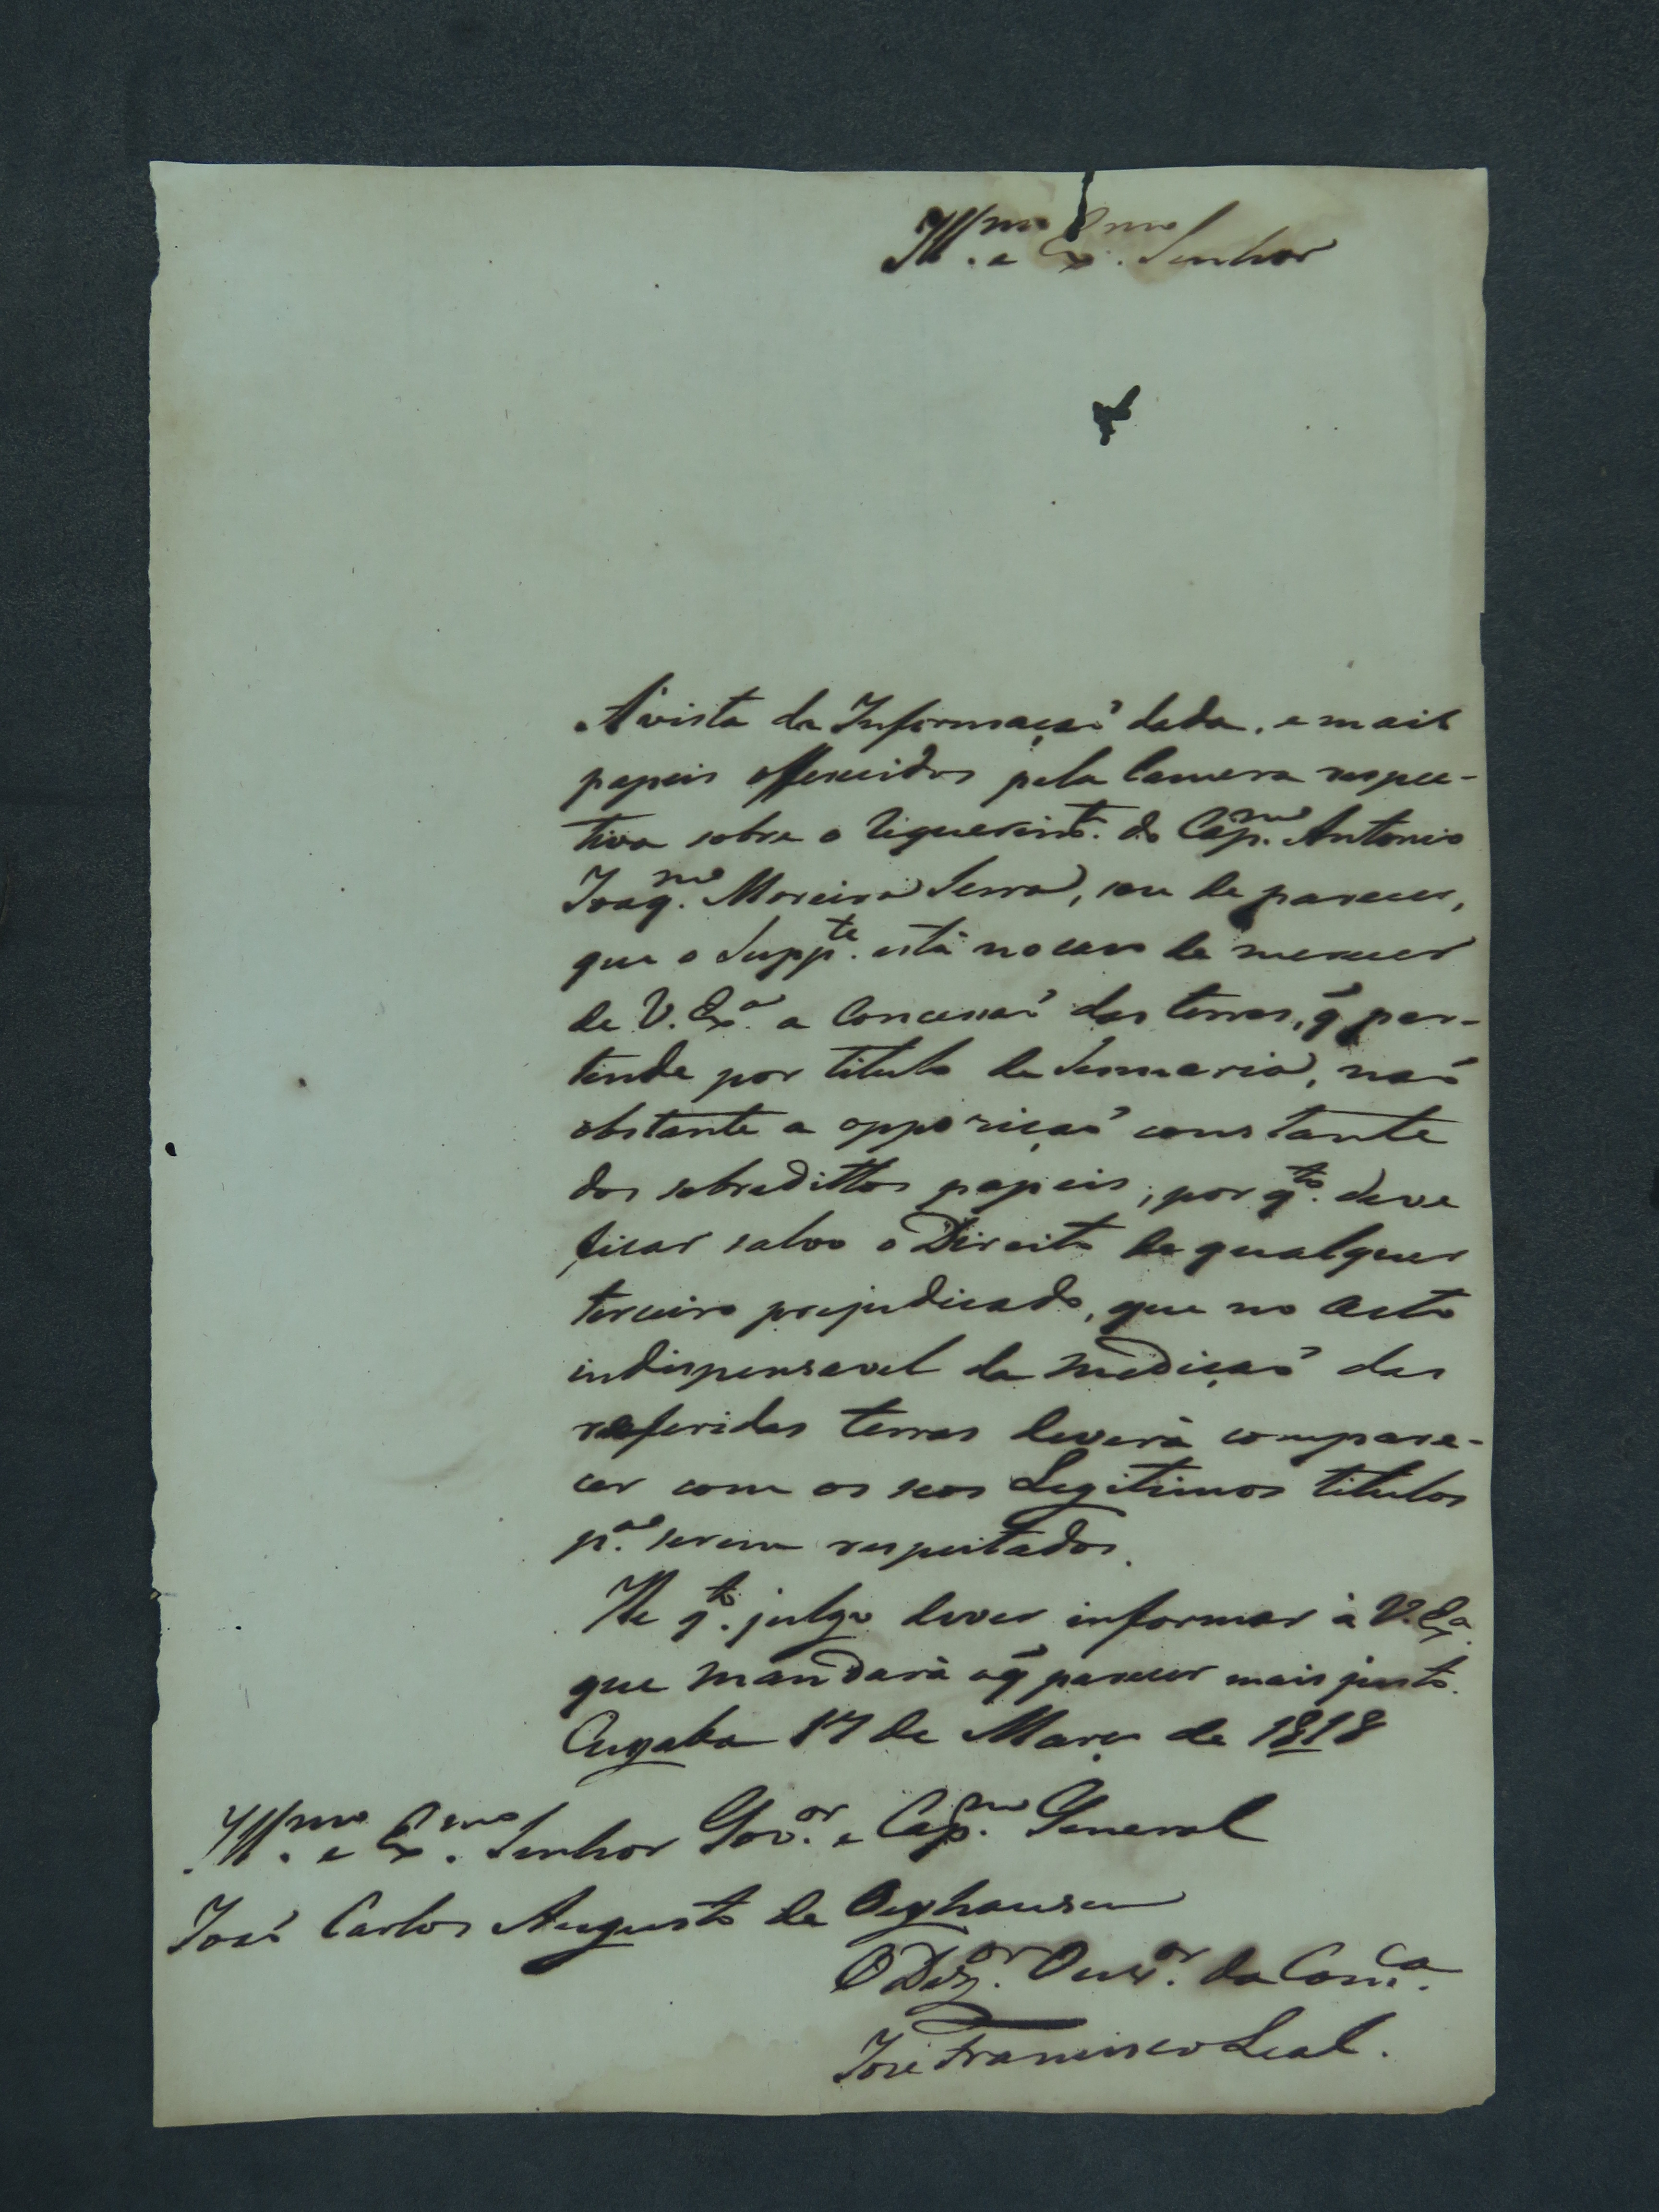 Ill.mo e Ex.mo Senhor
Á vista da Informaçaõ dada, e mais
papeis offerecidos pela Camera respec-
tiva sobre o Riquerim.to do Cap.m Antonio
Joaq.m Moreira Serra, sou de parecer,
que o Supp.te está no caso de merecer
de V. Ex.a a Concessaõ das terras, q̃ per-
tende por titulo de Sesmaria, naõ
obstante a opposiçaõ constante
dos sobredittos papeis, por q.to deve
ficar salvo o Direito de qualquer
terceiro prejudicado, que no acto
indispensavel da Mediçaõ das
referidas terras deverá compare-
cer com os seos Legitimos titulos
p.a serem respeitados.
He q.to julgo dever informar á V. Ex.a
que mandará o q̃ parecer mais justo.
Cuyaba 17 de Março de 1818
Ill.mo e Ex.mo Senhor Gov.or e Cap.m General
José Carlos Augusto de Oeynhausen
O Dez.or Ouv.or da Com.ca
José Francisco Leal.